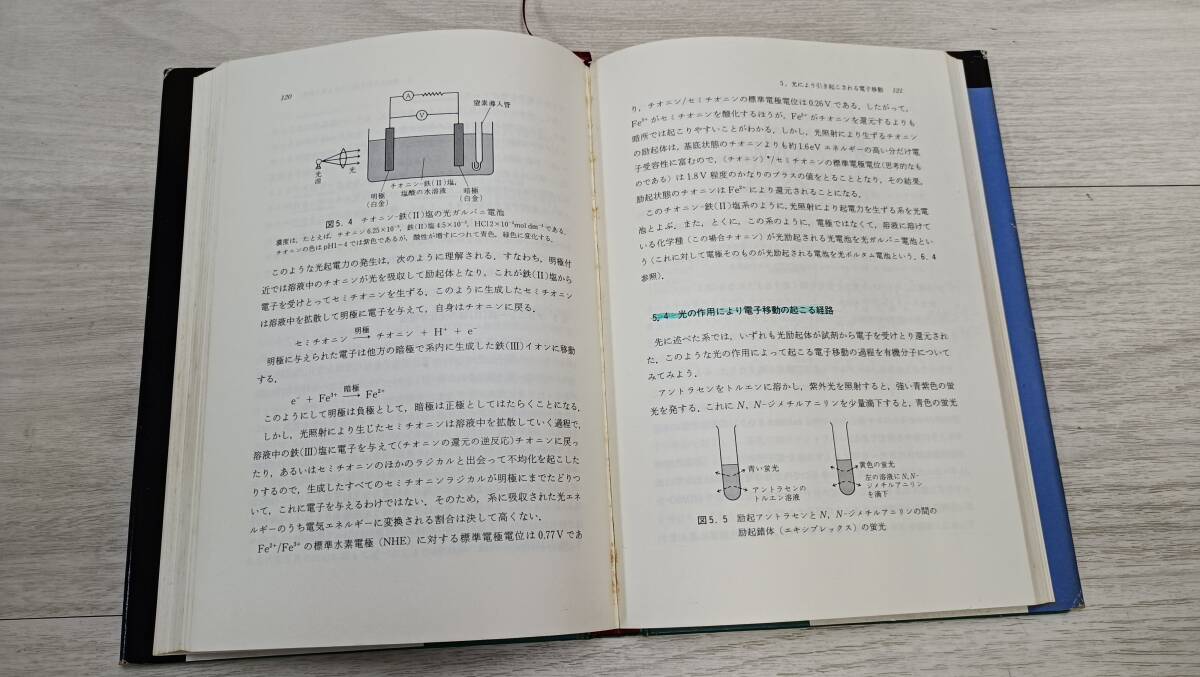 120
A
V
窒素導入管
光源
光
明極
(白金)
チオニン-鉄(II)塩,
塩酸の水溶液
暗極
(白金)
図5.4 チオニン-鉄(II)塩の光ガルバニ電池
濃度は,たとえば,チオニン6.25×10⁻⁵, 鉄(II)塩4.5×10⁻³, HCl 2×10⁻² mol dm⁻³である.
チオニンの色はpH1~4では紫色であるが,酸性が増すにつれて青色,緑色に変化する.
このような光起電力の発生は,次のように理解される.すなわち,明極付
近では溶液中のチオニンが光を吸収して励起体となり,これが鉄(II)塩から
電子を受けとってセミチオニンを生ずる.このように生成したセミチオニン
は溶液中を拡散して明極に電子を与えて,自身はチオニンに戻る.
明極
セミチオニン → チオニン + H⁺ + e⁻
明極に与えられた電子は他方の暗極で系内に生成した鉄(III)イオンに移動
する.
暗極
e⁻ + Fe³⁺ → Fe²⁺
このようにして明極は負極として,暗極は正極としてはたらくことになる.
しかし,光照射により生じたセミチオニンは溶液中を拡散していく過程で,
溶液中の鉄(III)塩に電子を与えて(チオニンの還元の逆反応)チオニンに戻っ
たり,あるいはセミチオニンのほかのラジカルと出会って不均化を起こした
りするので,生成したすべてのセミチオニンラジカルが明極にまでたどりつ
いて,これに電子を与えるわけではない.そのため,系に吸収された光エネ
ルギーのうち電気エネルギーに変換される割合は決して高くない.
Fe²⁺/Fe³⁺の標準水素電極(NHE)に対する標準電極電位は0.77Vであ
5.光により引き起こされる電子移動 121
り,チオニン/セミチオニンの標準電極電位は0.26Vである.したがって,
Fe³⁺がセミチオニンを酸化するほうが,Fe²⁺がチオニンを還元するよりも
暗所では起こりやすいことがわかる.しかし,光照射により生ずるチオニン
の励起体は,基底状態のチオニンよりも約1.6eVエネルギーの高い分だけ電
子受容性に富むので,(チオニン)*/セミチオニンの標準電極電位(思考的なも
のである)は1.8V程度のかなりのプラスの値をとることとなり,その結果,
励起状態のチオニンはFe²⁺により還元されることになる.
このチオニン-鉄(II)塩系のように,光照射により起電力を生ずる系を光電
池とよぶ.また,とくに,この系のように,電極ではなくて,溶液に溶けて
いる化学種(この場合チオニン)が光励起される光電池を光ガルバニ電池とい
う(これに対して電極そのものが光励起される電池を光ボルタム電池という.6.4
参照).
5.4 光の作用により電子移動の起こる経路
先に述べた系では,いずれも光励起体が試剤から電子を受けとり還元され
た.このような光の作用によって起こる電子移動の過程を有機分子について
みてみよう.
アントラセンをトルエンに溶かし,紫外光を照射すると,強い青紫色の蛍
光を発する.これにN,N-ジメチルアニリンを少量滴下すると,青色の蛍光
青い蛍光
アントラセンの
トルエン溶液
黄色の蛍光
左の溶液にN,N-
ジメチルアニリン
を滴下
図5.5 励起アントラセンとN,N-ジメチルアニリンの間の
励起錯体(エキシプレックス)の蛍光